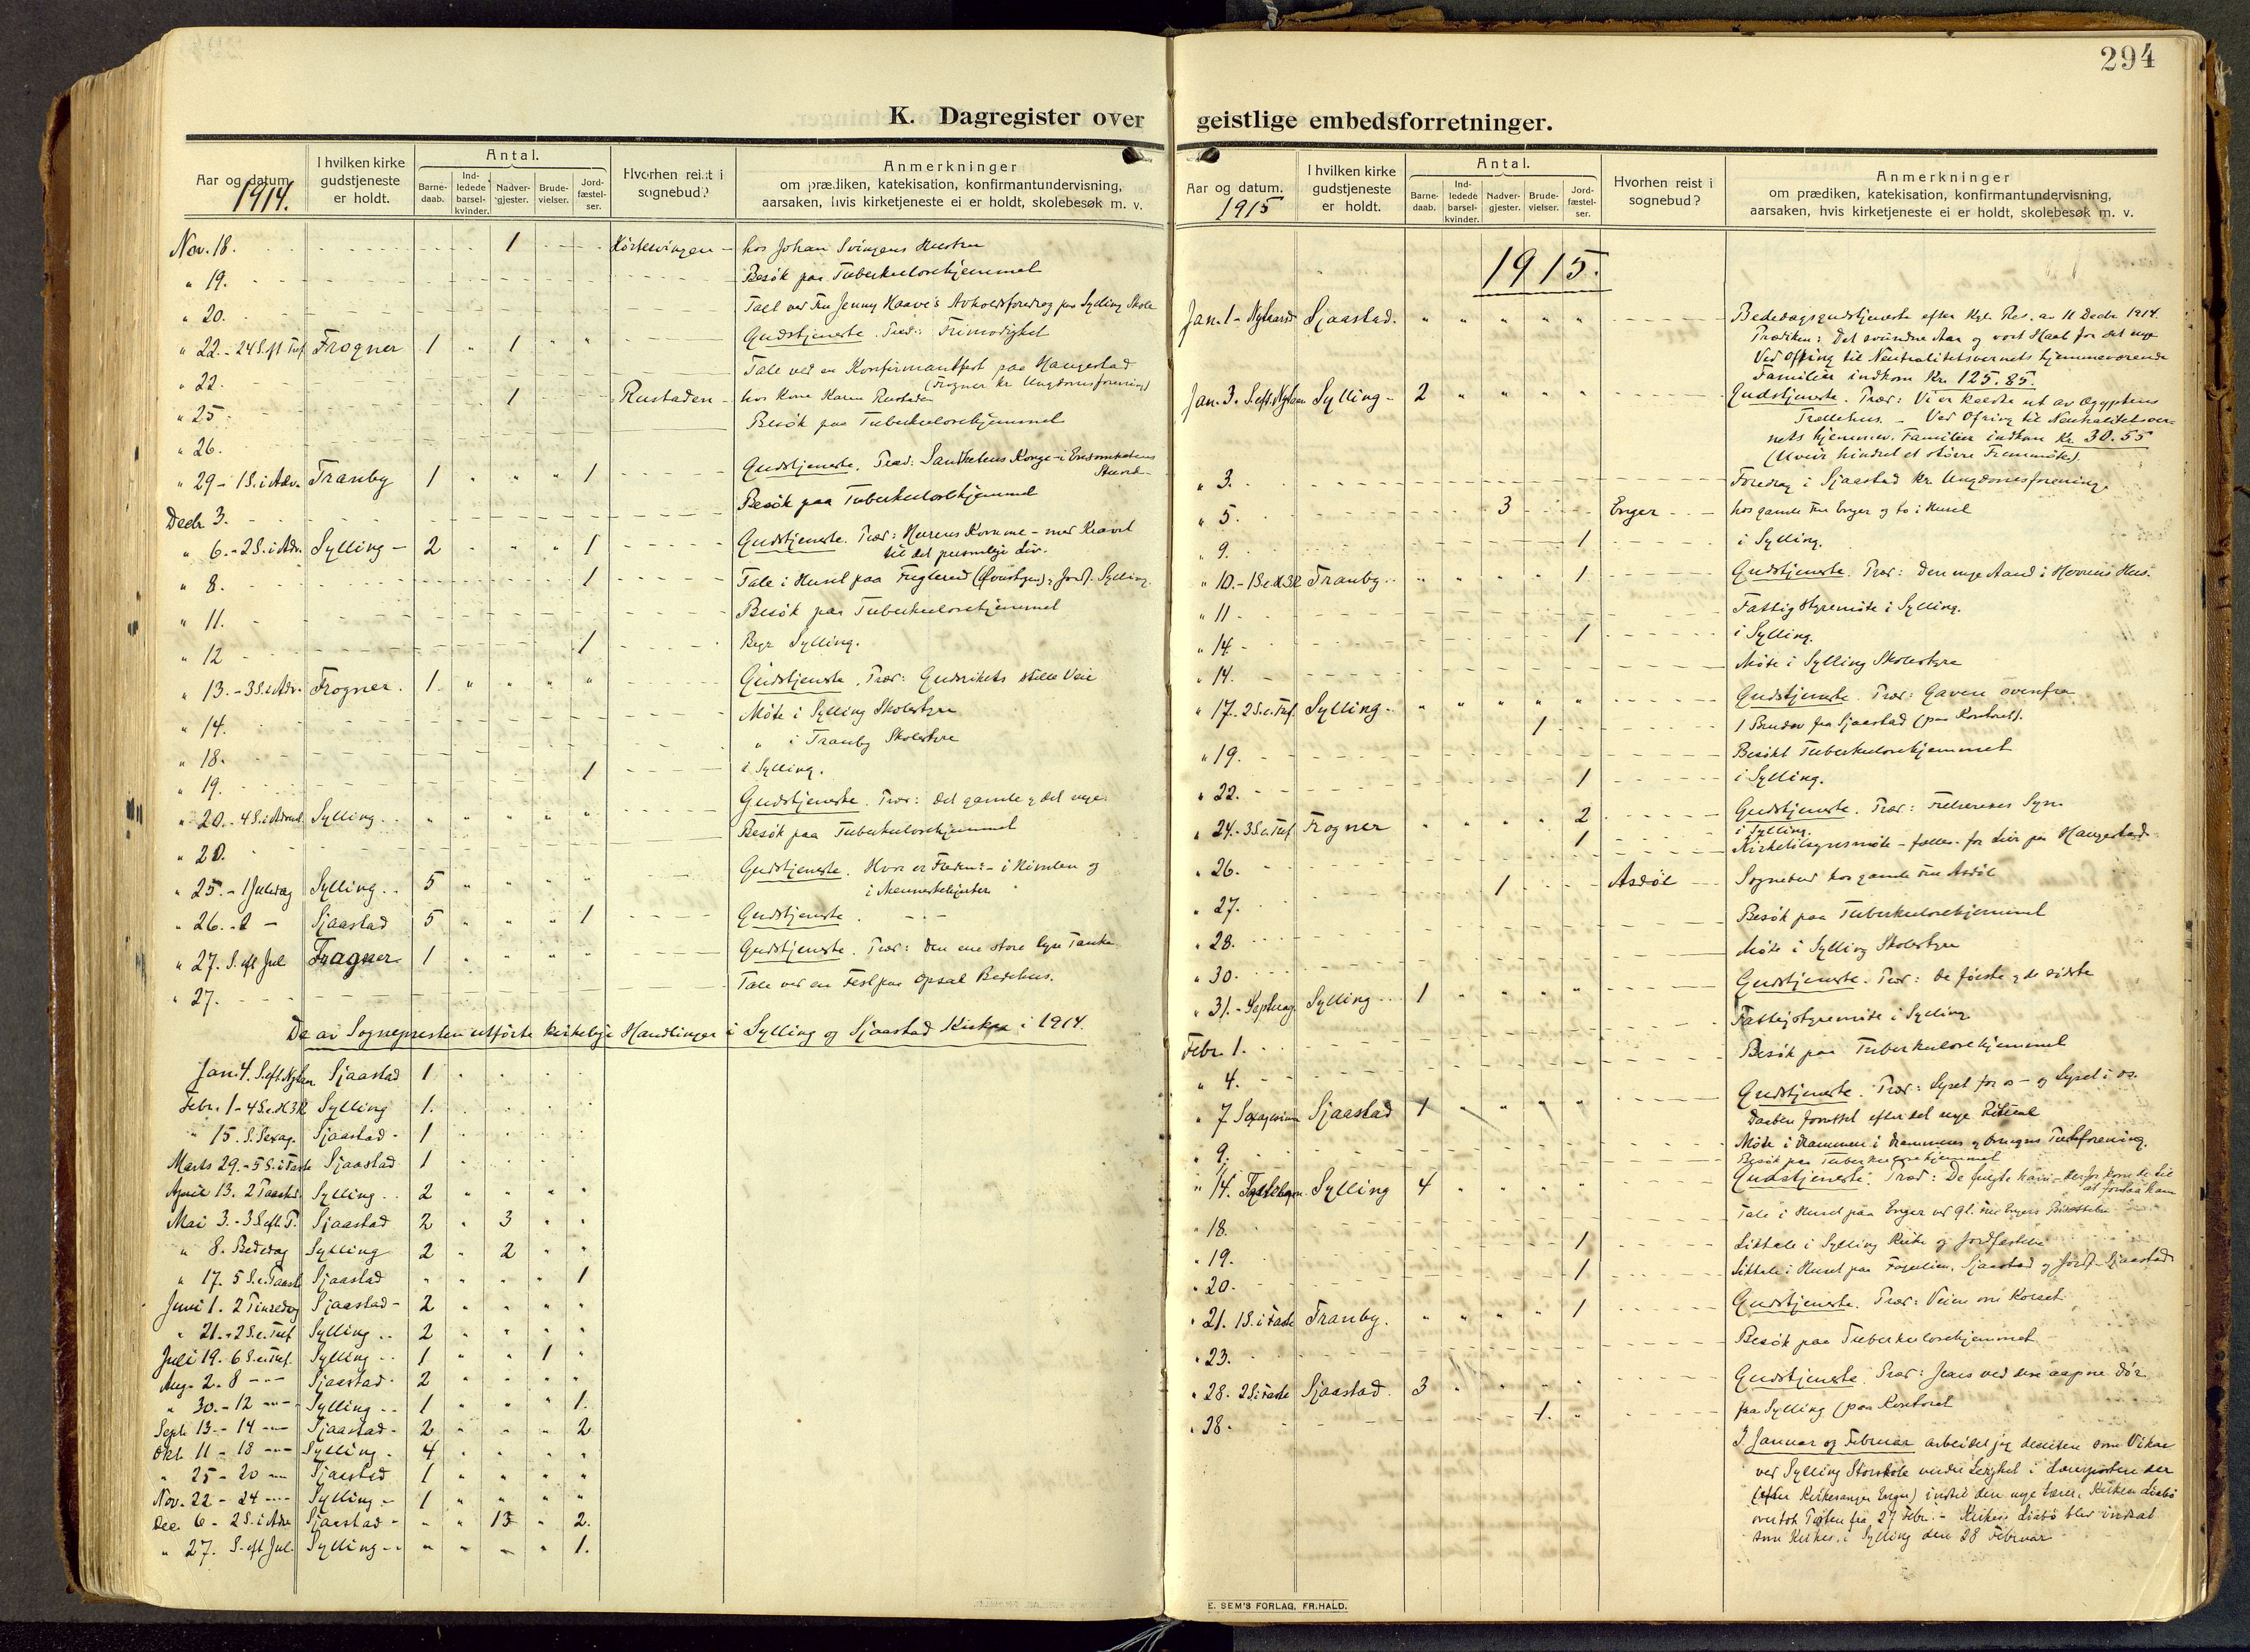 K. Dagregister over
Aar og datum. 1914. | I hvilken kirke gudstjeneste er holdt. | Antal. Barne-daab. | Ind-ledede barsel-kvinder. | Nadver-gjester. | Brude-vielser. | Jord-fæstel-ser. | Hvorhen reist i sognebud? | Anmerkninger om prædiken, katekisation, konfirmantundervisning, aarsaken, hvis kirketjeneste ei er holdt, skolebesøk m. v.
Nov. 18. 1 hos Johan Svingens Hustru
" 19. Besök paa Tuberkulosehjemmet
" 20. Tael ved Fru Jenny Haave's Avholdsforedrag paa Sylling Skole
" 22. - 24 S. eft Tref Frogner 1 " 1 " " Gudstjeneste. Præd: Frimodighet
" 22. Tale ved en Konfirmantfest paa Haugestad
(Frogner kr Ungdomsforening)
" 25. 1 Rustaden - hos Kone Karen Rustaden
" 26. Besök paa Tuberkulosehjemmet
" 29 - 1 S. i Adv. Tranby 1 " " " 1 Gudstjeneste. Præd: Sandhetens Konge - i Ensomhetens Stund -
Decbr 3. Besök paa Tuberkulosehjemmet
" 6. - 2 S. i Adv. Sylling - 2 " " " 1 Gudstjeneste. Præd: Herrens Komme - med Kravet
til det personlige Liv.
" 8. 1 Tale i Huset paa Fuglerud ; Jordf. Sylling.
" 11. Besök paa Tuberkulosehjemmet
" 12 1 Begr Sylling.
" 13. - 3 S. i Adv. Frogner. 1. " " " " Gudstjeneste. Præd: Gudsrikets stille Veie
" 14. Möte i Sylling Skolestyre
" 18. " i Tranby Skolestyre
" 19. 1 i Sylling.
" 20. - 4 S. i Advent. Sylling. " " " " " Gudstjeneste. Præd: Det gamle & det nye.
" 20. Besök paa Tuberkulosehjemmet
" 25. - 1 Juledag Sylling. 5 " " " " Gudstjeneste. Hvor er Freden? - i Himlen og
i Menneskehjerter
" 26. - 2 - Sjaastad 5 " " " 1 Gudstjeneste. - " -
" 27. S. eft Jul Frogner 1 " " " " Gudstjeneste. Præd: Den ene store lyse Tanke
" 27. Tale ved en Fest paa Opsal Bedehus.
De av Sognepresten utförte kirkelige Handlinger i Sylling og Sjaastad Kirke i 1914.
Jan. 4. S. eft. Nytaar Sjaastad 1 " " " "
Febr. 1 - 4 S. e. H3K Sylling 1. " " " "
" 15. S. Sexag. Sjaastad - 1 " " " "
Marts 29. - 5 S. i Faste Sjaastad 1 " " " "
April 13. 2 Paaskd. Sylling.. 2 " " " "
Mai 3. - 3 S. eft. P. Sjaastad 2 " 3 " "
" 8. Bededag Sylling 2 " 2 " "
" 17. 5 S. e. Paaske Sjaastad " " " " 1
Juni 1. 2 Pinsedag Sjaastad - 2 " " " "
" 21. - 2 S. e. Tref Sylling.. 2 " " " "
Juli 19. 6 S. e. Tref. Sylling.. 1 " " 1 "
Aug. 2. 8 - " - Sjaastad. 2 " " " "
" 30. - 12 - " - Sylling.. 1 " " " 1.
Sept. 13. - 14 - " - Sjaastad - 2 " " " 2
Oktb. 11 - 18 - " - Sylling. 4 " " " "
" 25 - 20 - " - Sjaastad 1 " " " "
Nov. 22 - 24 - " - Sylling.. 1 " " " "
Dec. 6 - 2 S. i Adv Sjaastad - " " 13 " 2.
" 27. S. eft Jul. Sylling.. " " " " 1.
294
geistlige embedsforretninger.
Aar og datum. 1915 | I hvilken kirke gudstjeneste er holdt. | Antal. Barne-daab. | Ind-ledede barsel-kvinder. | Nadver-gjester. | Brude-vielser. | Jord-fæstel-ser. | Hvorhen reist i sognebud? | Anmerkninger om prædiken, katekisation, konfirmantundervisning, aarsaken, hvis kirketjeneste ei er holdt, skolebesøk m. v.
1915.
Jan. 1 - Nytaarsd Sjaastad. " " " " " Bededagsgudstjeneste efter Kgl. Res. av 11 Decbr 1914.
Prædiken: Det svundne Aar og vort Haab for det nye
Ved Ofring til Neutralitetsvernets hjemmeværende
Familier indkom Kr. 125.85.
Jan. 3. S. eft. Nytaar Sylling - 2 " " " " Gudstjeneste. Præd: Vi er kaldte ut av Ægyptens
Trællehus. - Ved Ofring til Neutralitetsver-
nets hjemmev. Familier indkom Kr. 30.55
(Uveir hindret et större Fremmöte)
" 3. Foredrag i Sjaastad kr. Ungdomsforening.
" 5. 3 Enger hos gamle Fru Enger og to i Huset
" 9. 1 i Sylling.
" 10. - 1 S. e. H3K Tranby. " " " " 1 Gudstjeneste. Præd: Den nye Aand i Herrens Hus.
" 11 Fattigstyremöte i Sylling.
" 14 1 i Sylling.
" 14. Möte i Sylling Skolestyre
" 17. 2 S. e. Tref. Sylling. " " " " " Gudstjeneste. Præd: Gaven ovenfra
1 1 Brudev fra Sjaastad (paa Kontoret).
" 19. Besökt Tuberkulosehjemmet
" 22. 1 i Sylling.
" 24. - 3 S. e. Tref. Frogner " " " " 2 Gudstjeneste. Præd: Frelserens Syn.
1 i Sylling.
" 26. Kirketilsynsmöte - felles - for Lier paa Haugestad
" 27. 1 Asdöl Sognebud hos gamle Fru Asdöl
" 28. Besök paa Tuberkulosehjemmet
" 30. Möte i Sylling Skolestyre
" 31. - Septuag. Sylling.. 1 " " " " Gudstjeneste. Præd: De förste & de sidste
Febr. 1. Fattigstyremöte i Sylling
" 4. Besök paa Tuberkulosehjemmet
" 7 Sexagesima Sjaastad 1 " " " " Gudstjeneste. Præd: Lyset for os - og Lyset i os.
Daaben forrettet efter det nye Ritual
" 9. Möte i Drammen i Drammens & Omegns Præsteforening.
Besök paa Tuberkulosehjemmet
" 14. Fastelavn. Sylling 4 " " " " Gudstjeneste. Præd:
" 18. Tale i Huset paa Enger ved gl. Fru Engers
" 19. 1 Liktale i Sylling Kirke og Jordfæstelse
" 20. 1 Liktale i Huset paa Sjaastad & Jordf. Sjaastad
" 21. 1 S. i Faste Tranby. " " " " 1 Gudstjeneste. Præd: Veien om Korset
" 23. Besök paa Tuberkulosehjemmet
" 28. 2 S. i Faste Sjaastad. 3 " " " " Gudstjeneste. Præd: Jesus ved den aapne Dör
" 28. 1. " fra Sylling (paa Kontoret
I Januar og Februar arbeidet jeg desuten som Vikar
ved Sylling Storskole i Lærerposten der
(efter Kirkesanger Enger) indtil den nye Lærer, Kirkes. Liabö
overtok Posten fra 27 Febr. - Kirkes. Liabö blev indsat
som Kirkes. i Sylling den 28 Februar
E. SEM'S FORLAG, FR.HALD.